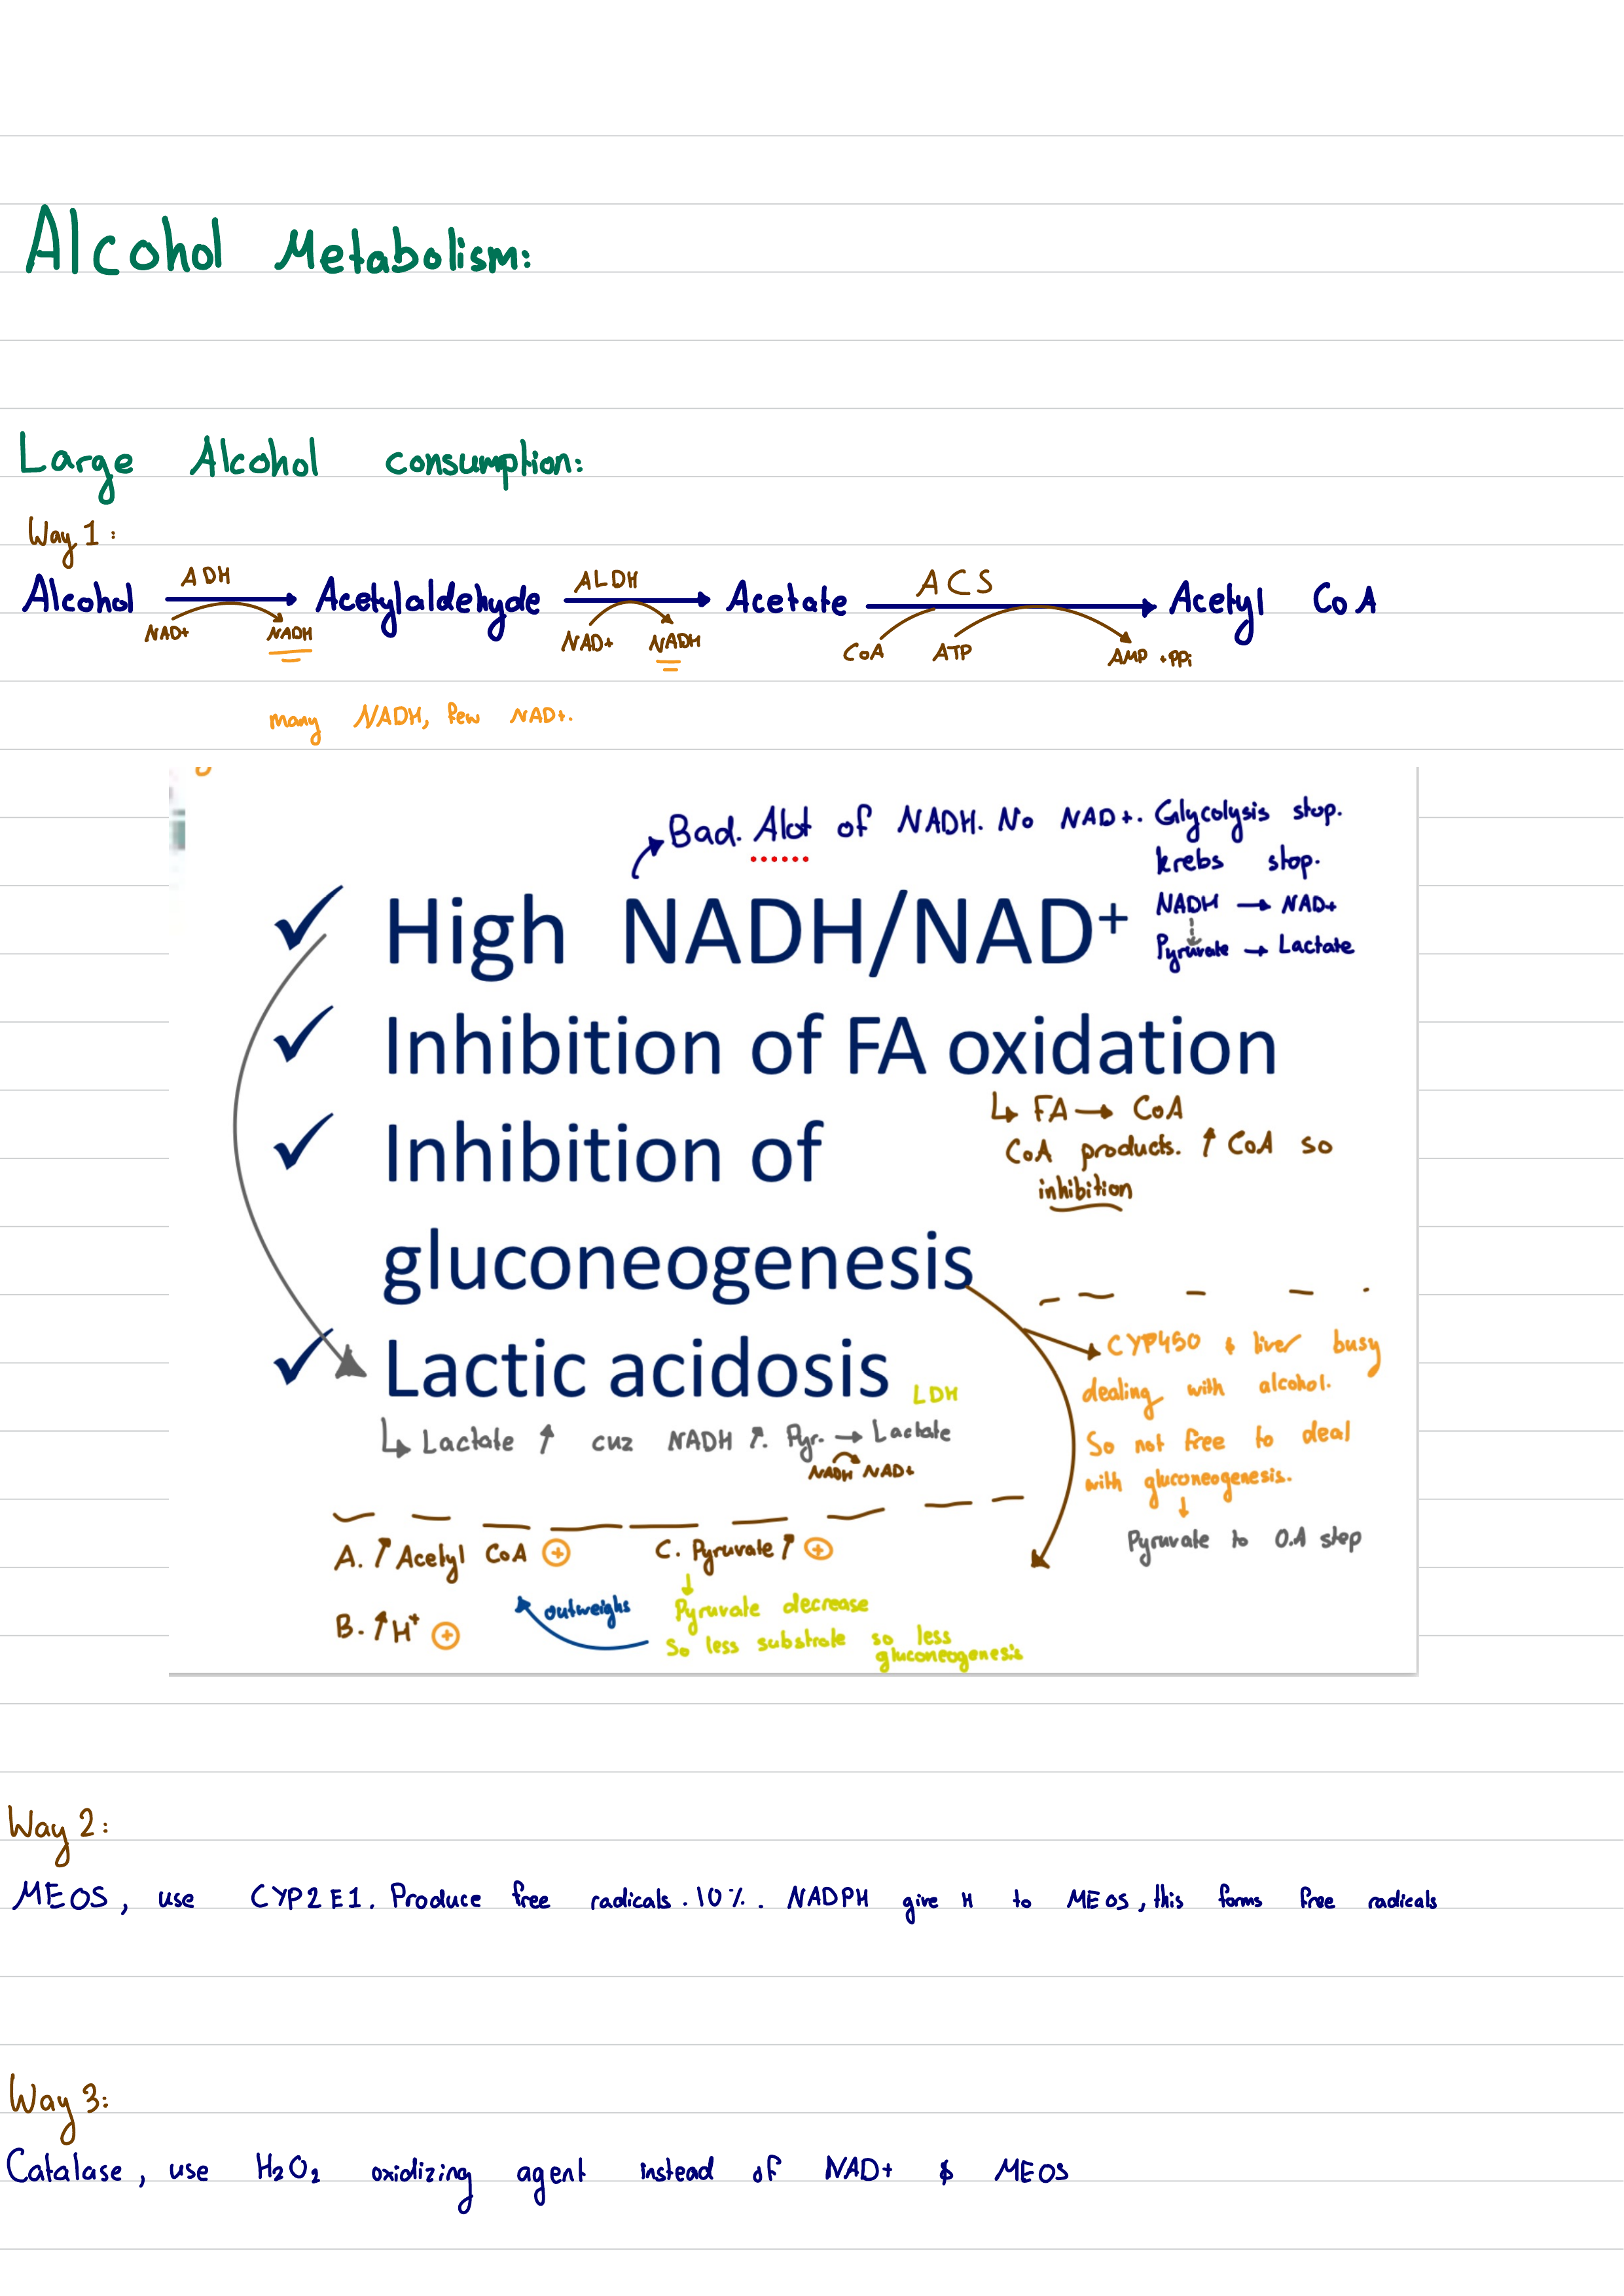 Alcohol Metabolism:
Large Alcohol consumption:
Way 1:
Alcohol ADH Acetylaldehyde ALDH Acetate ACS Acetyl CoA
NAD+ NADH NAD+ NADH CoA ATP AMP +PPi
many NADH, few NAD+.
Bad. Alot of NADH. No NAD+. Glycolysis stop.
krebs stop.
High NADH/NAD+
NADH → NAD+
Pyruvate → Lactate
Inhibition of FA oxidation
↳ FA → CoA
CoA products. ↑ CoA so
inhibition
Inhibition of
gluconeogenesis
CYP450 & liver busy
dealing with alcohol.
So not free to deal
with gluconeogenesis.
Pyruvate to O.A step
Lactic acidosis LDH
↳ Lactate ↑ cuz NADH ↑. Pyr. → Lactate
NADH NAD+
A. ↑ Acetyl CoA + C. Pyruvate ↑ +
Pyruvate decrease
So less substrate so less
gluconeogenesis
outweighs
B. ↑ H+ +
Way 2:
MEOS, use CYP2E1. Produce free radicals. 10%. NADPH give H to MEOS, this forms free radicals
Way 3:
Catalase, use H2O2 oxidizing agent instead of NAD+ & MEOS